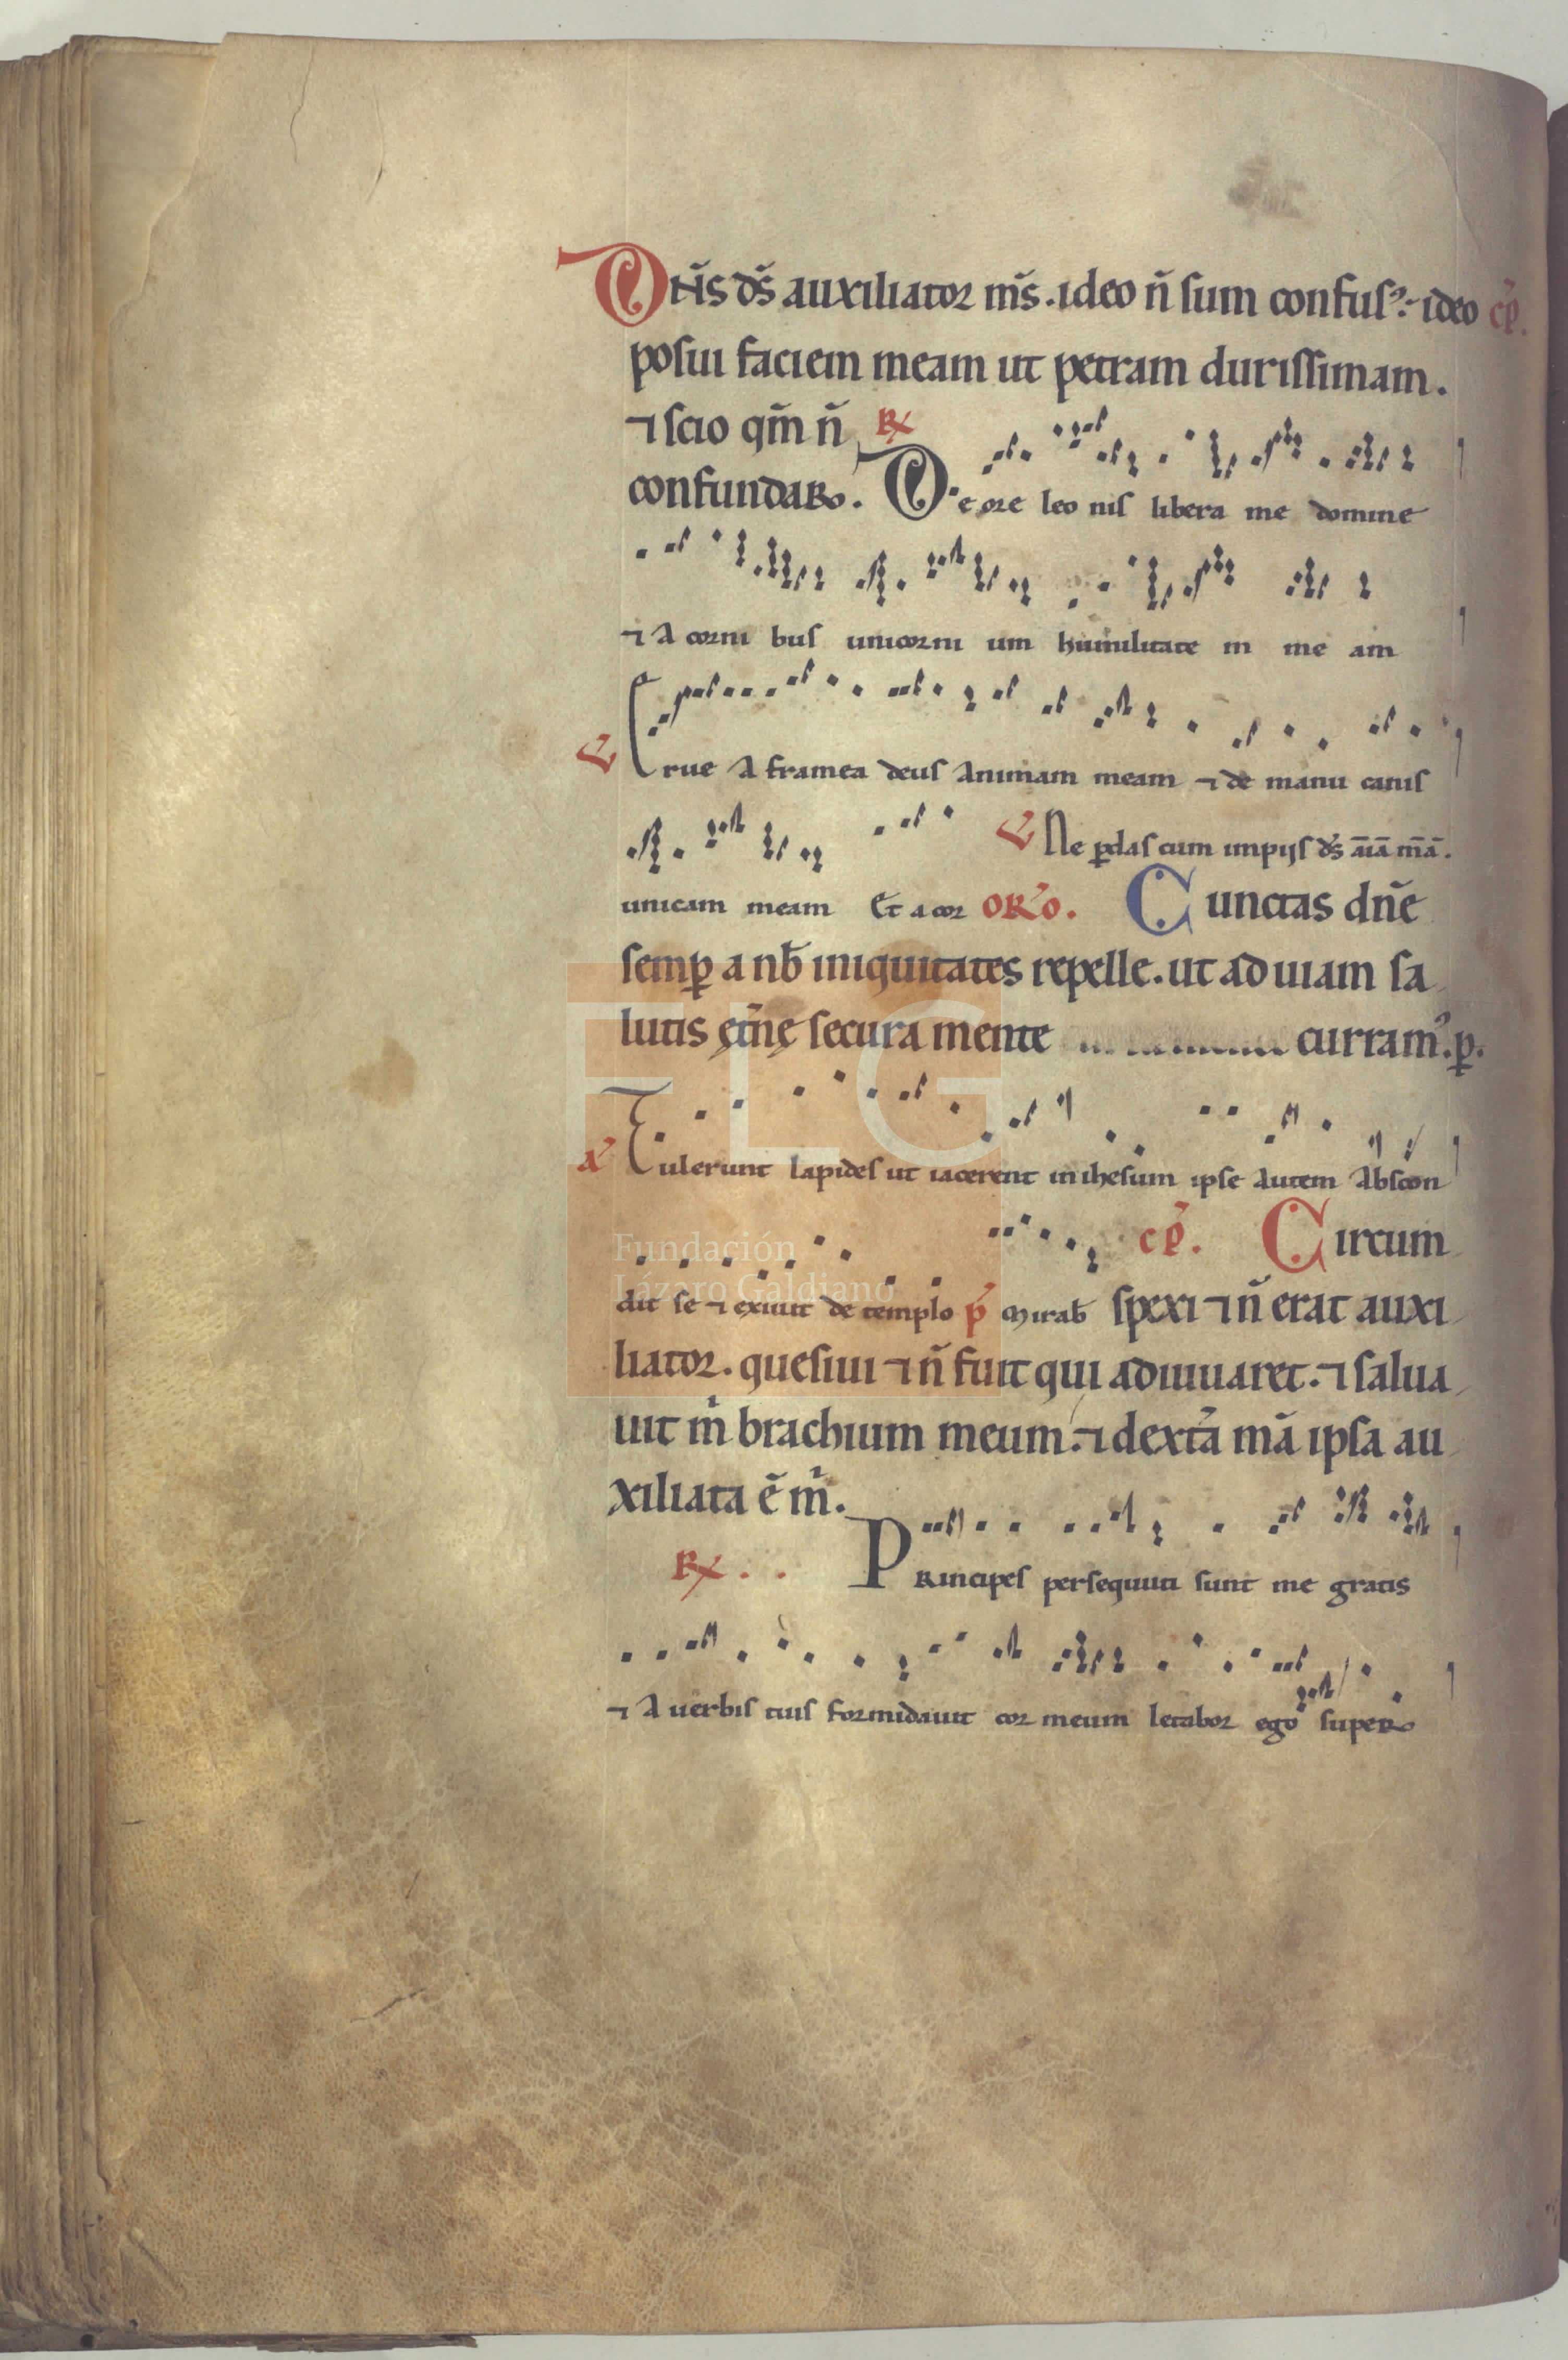 Dn̄s ds̄ auxiliator ms̄. ideo n̄ sum confusꝰ. ideo cp̄.
posui faciem meam ut petram durissimam.
⁊ scio qm̄ n̄ R
confundar. De ore leo nis libera me domine
⁊ A corni bus unicorni um humilitate m me am
V Erue A framea deus Animam meam ⁊ de manu canis
V Ne ꝑdas cum impijs ds̄ aīā m̄ā.
unicam meam Et a cor oRo. Cunctas dn̄e
semꝑ a nb̄ iniquitates repelle. ut ad uiam sa
lutis ęt̄nę secura mente curramꝰ. ꝑ.
a Tulerunt lapides ut iacerent in ihesum ipse Autem Abscon
cp̄. Circum
dit se ⁊ exiuit de templo p̄ Mirab̄ spexi ⁊ n̄ erat auxi
liator. quesiui ⁊ n̄ fuit qui adiuuaret. ⁊ salua
uit m̄ brachium meum. ⁊ dext̄a mā ipsa au
xiliata ē m̄.
R. . Principes persequuti sunt me gratis
⁊ A uerbis tuis formidauit cor meum letabor ego super
FLG
Fundación
Lázaro Galdiano